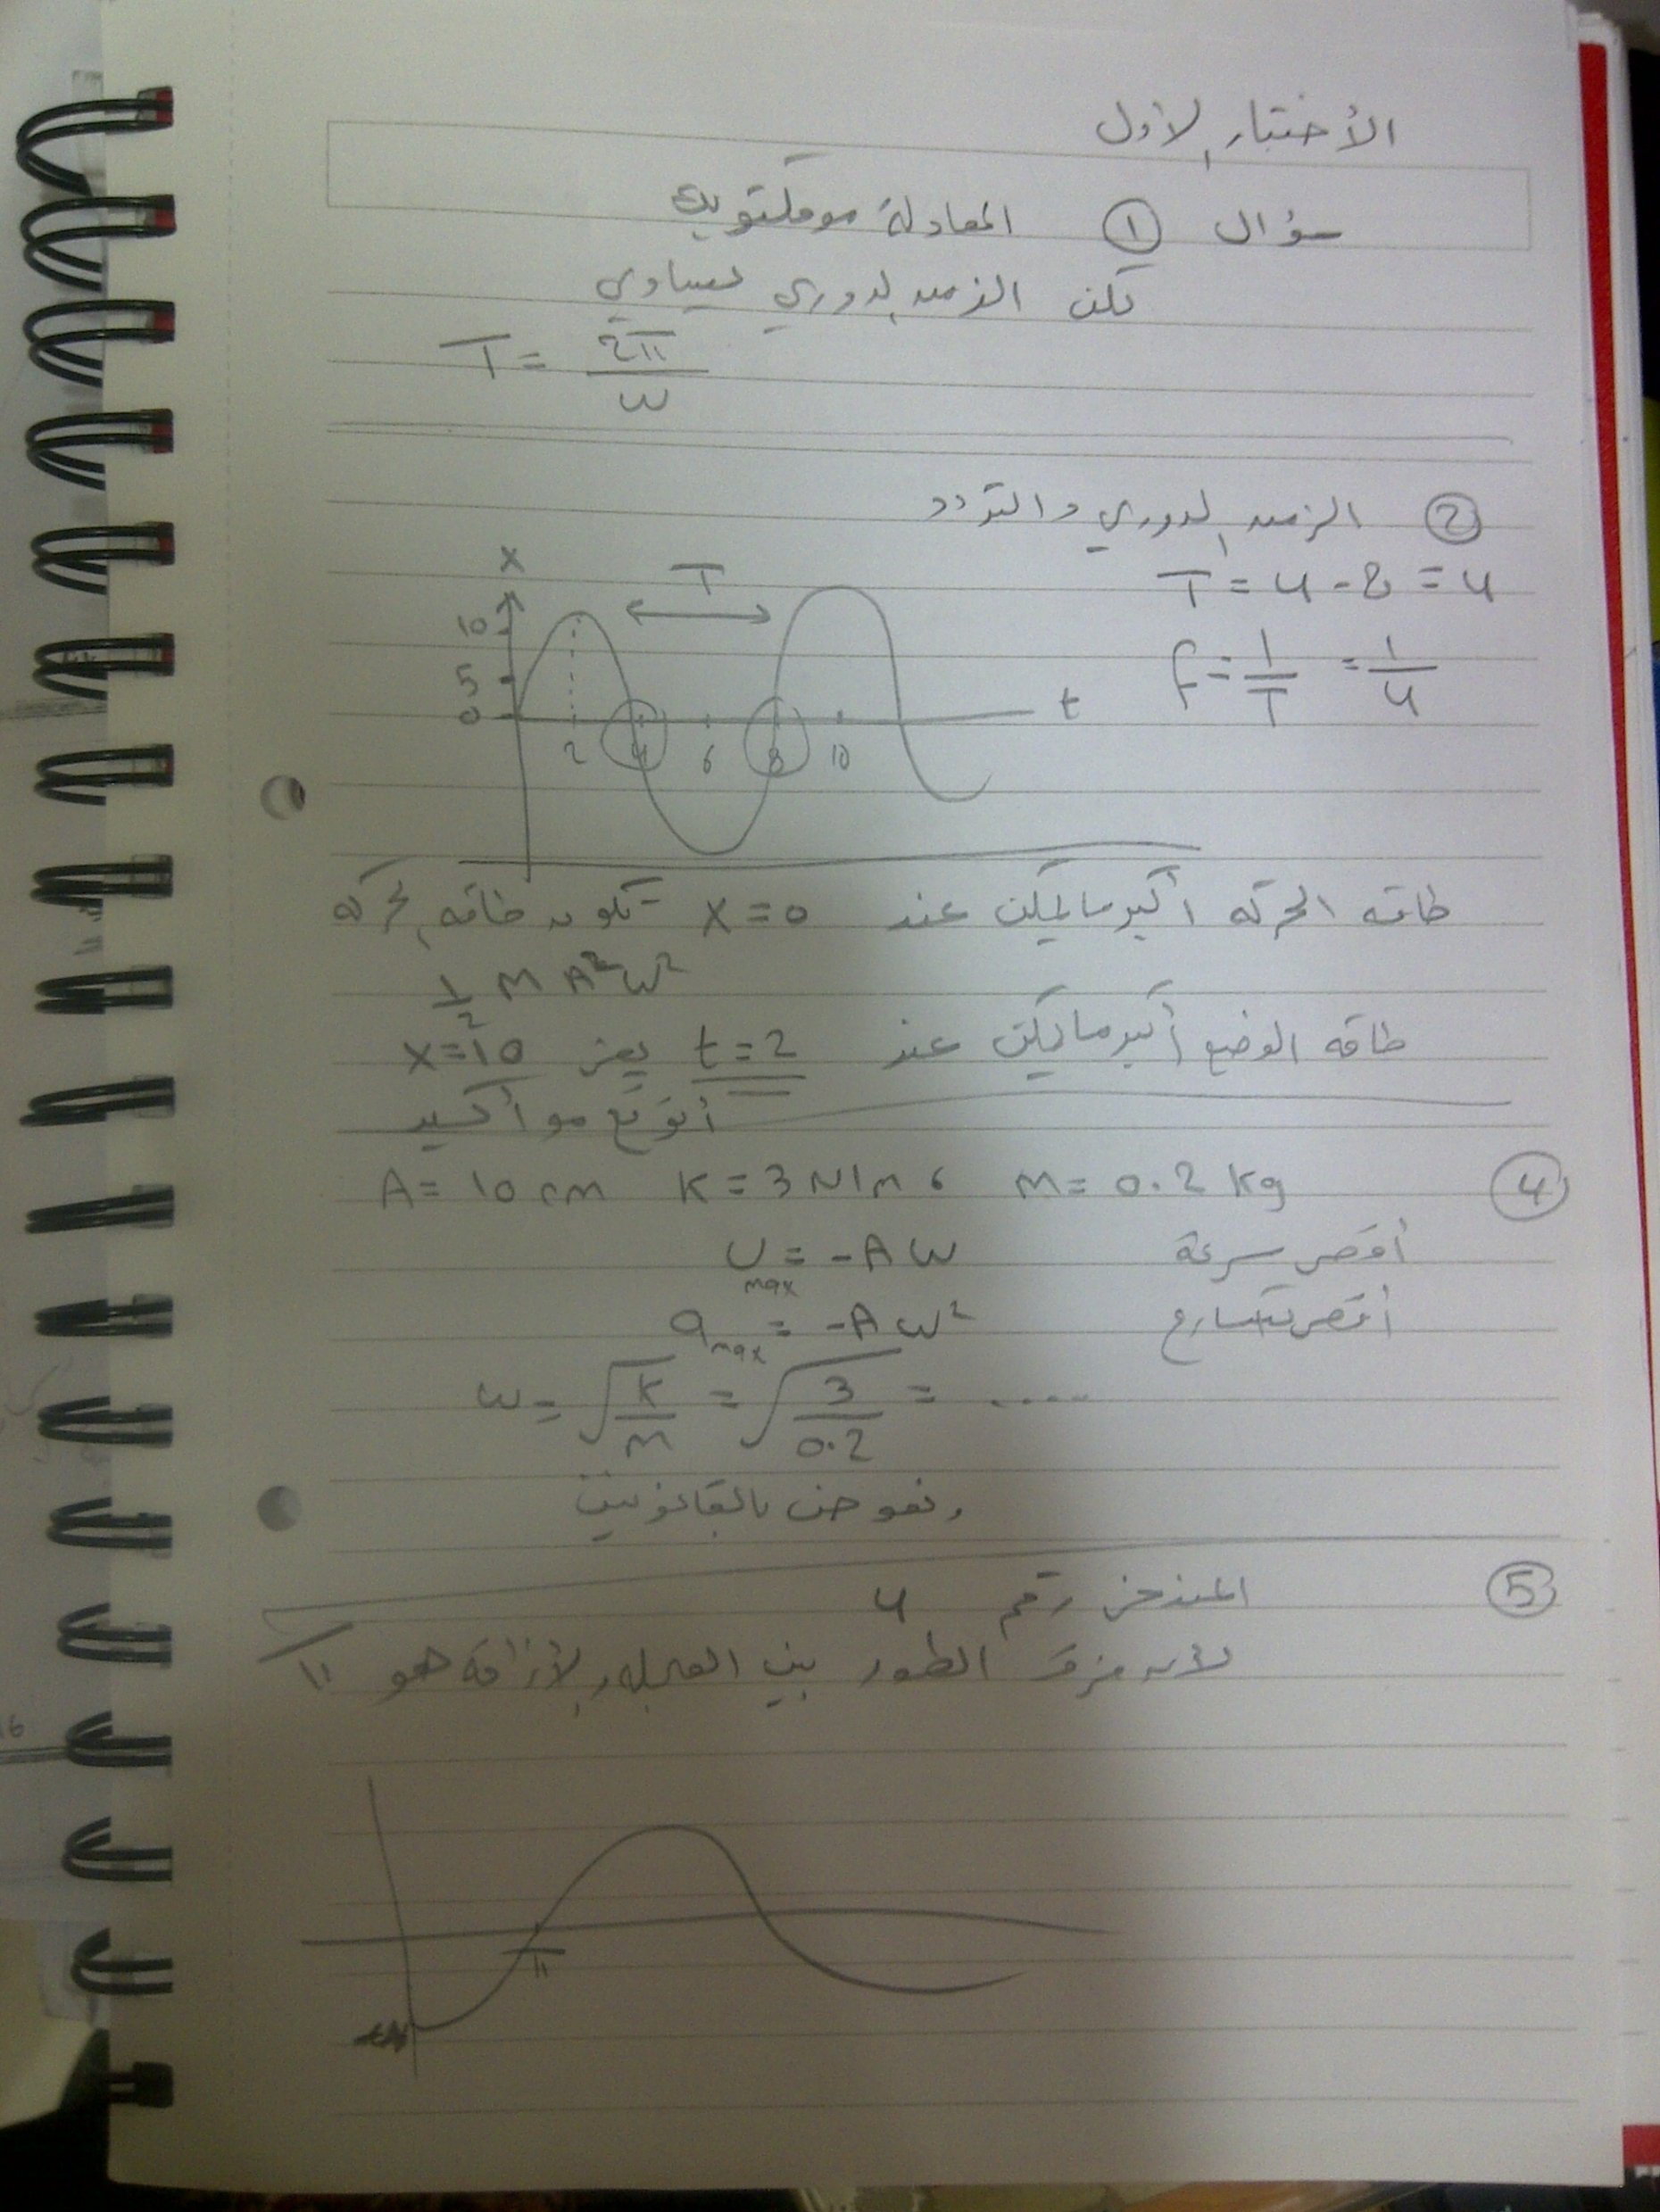 الأختبار الأول
سؤال ① المعادلة مومكتوبه
لكن الزمن الدوري يساوي
T = 2π / ω
② الزمن الدوري والتردد
T = 4 - 8 = 4
f = 1/T = 1/4
x
T
10
5
0
2 4 6 8 10
t
طاقه الحركه أكبر مايمكن عند x = 0 تكون طاقه الحركه
1/2 m A² ω²
طاقه الوضع أكبر مايمكن عند t = 2 يعني x = 10
أتوقع مو أكيد
④ m = 0.2 kg ، K = 3 N/m A = 10 cm
أقصى سرعة υmax = -A ω
أقصى تسارع amax = -A ω²
ω = √(K/m) = √(3/0.2) = ....
ونعوض بالقانونين
⑤ المنحنى رقم 4
لأن فرق الطور بين العجله والأزاحه هو π
π